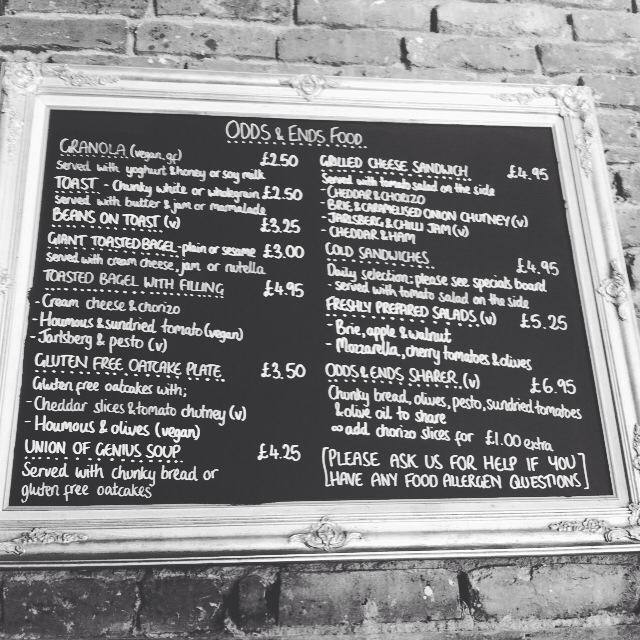 ODDS & ENDS FOOD
GRANOLA (vegan, gf) £2.50
Served with yoghurt & honey or soy milk
TOAST - Chunky white or wholegrain £2.50
served with butter & jam or marmalade
BEANS ON TOAST (v) £3.25
GIANT TOASTED BAGEL - plain or sesame £3.00
served with cream cheese, jam or nutella
TOASTED BAGEL WITH FILLING £4.95
- Cream cheese & chorizo
- Houmous & sundried tomato (vegan)
- Jarlsberg & pesto (v)
GLUTEN FREE OATCAKE PLATE £3.50
Gluten free oatcakes with;
- Cheddar slices & tomato chutney (v)
- Houmous & olives (vegan)
UNION OF GENIUS SOUP £4.25
Served with chunky bread or
gluten free oatcakes
GRILLED CHEESE SANDWICH £4.95
Served with tomato salad on the side
- CHEDDAR & CHORIZO
- BRIE & CARAMELISED ONION CHUTNEY (v)
- JARLSBERG & CHILLI JAM (v)
- CHEDDAR & HAM
COLD SANDWICHES £4.95
Daily selection: please see specials board
- served with tomato salad on the side
FRESHLY PREPARED SALADS (v) £5.25
- Brie, apple & walnut
- Mozzarella, cherry tomatoes & olives
ODDS & ENDS SHARER (v) £6.95
Chunky bread, olives, pesto, sundried tomatoes
& olive oil to share
∞ add chorizo slices for £1.00 extra
[PLEASE ASK US FOR HELP IF YOU
HAVE ANY FOOD ALLERGEN QUESTIONS]